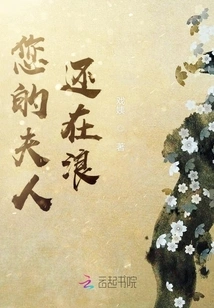 您的夫人
还在浪
著
云起书院